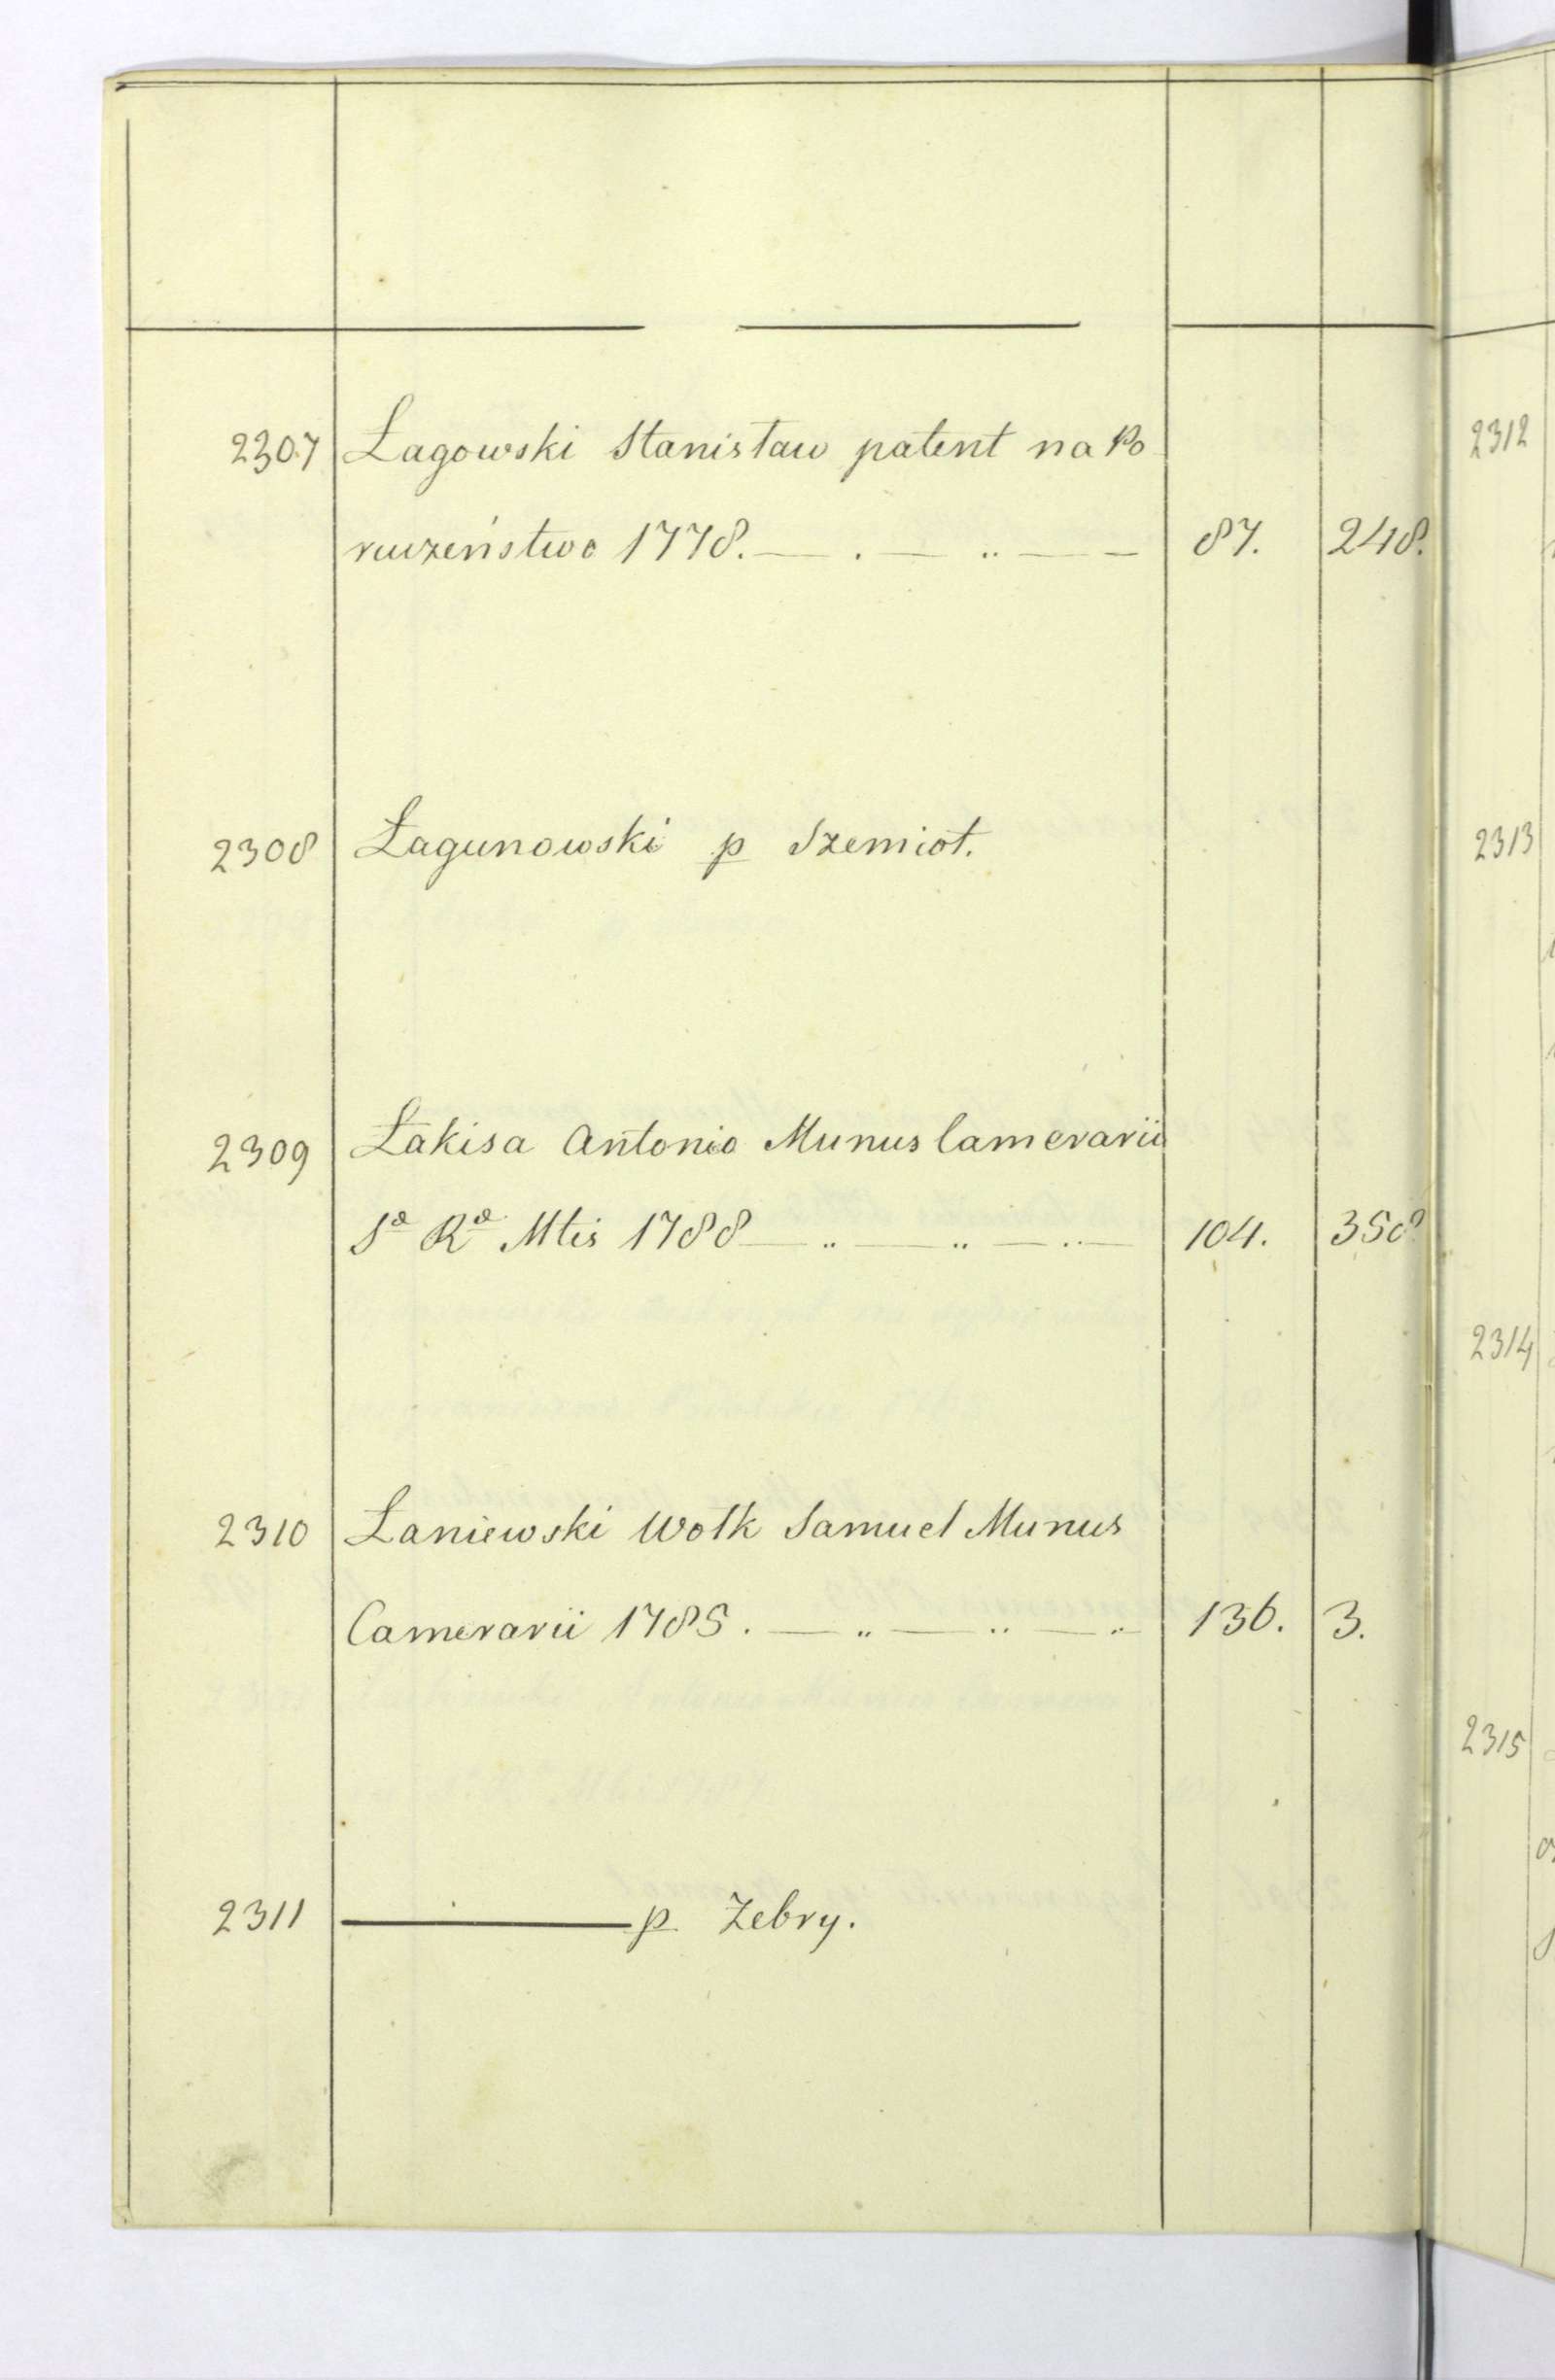 2307 Łagowski Stanisław patent na Po
ruczeństwo 1778. — . — .. — — 87. 248.
2308 Łagunowski p Szemiot.
2309 Łakisa Antonio Munus Camerarii
Sæ Ræ Mtis 1788 — .. — .. — .. — 104. 358
2310 Łaniewski Wołk Samuel Munus
Camerarii 1785. — .. — .. — .. 136. 3.
2311 ——— p Żebry.
2312
2313
2314
2315